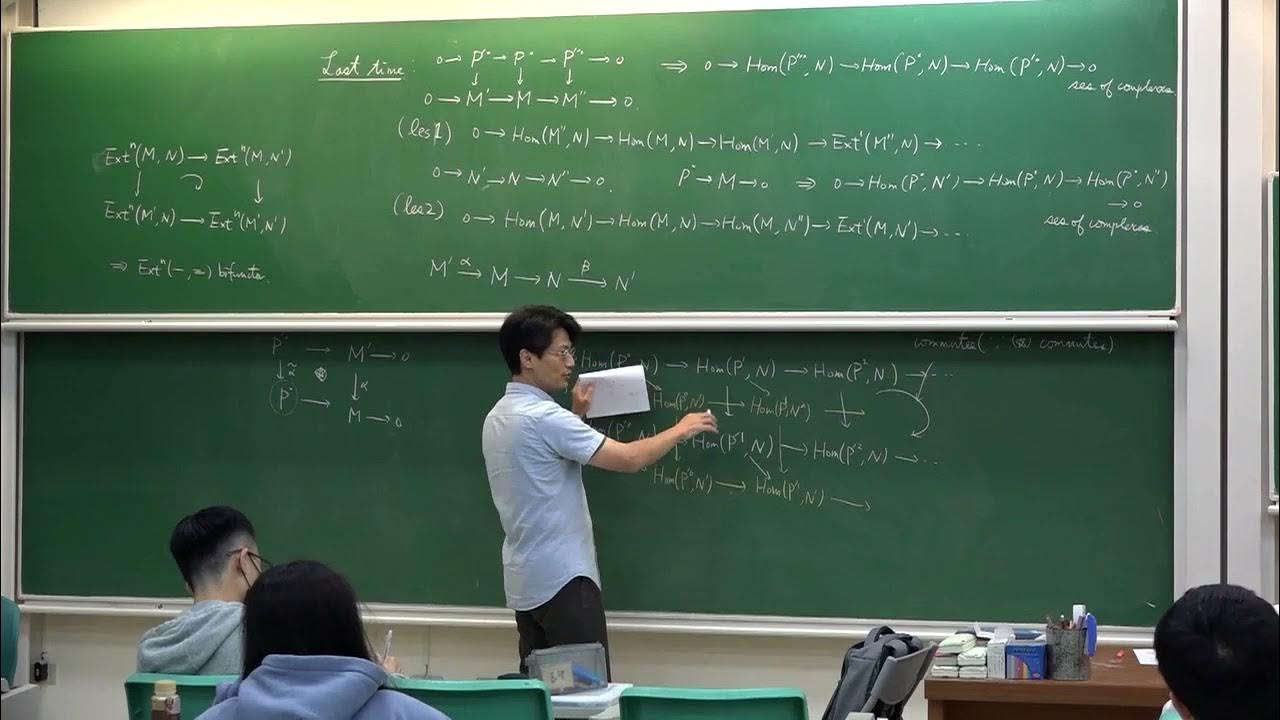 Last time: 0 → P'• → P• → P''• → 0 ⇒ 0 → Hom(P''•, N) → Hom(P•, N) → Hom(P'•, N) → 0
ses of complexes
↓ ↓ ↓
0 → M' → M → M'' → 0.
(les1) 0 → Hom(M'', N) → Hom(M, N) → Hom(M', N) → Ext¹(M'', N) → ⋯
0 → N' → N → N'' → 0. P• → M → 0 ⇒ 0 → Hom(P•, N') → Hom(P•, N) → Hom(P•, N'')
→ 0
ses of complexes.
(les2) 0 → Hom(M, N') → Hom(M, N) → Hom(M, N'') → Ext¹(M, N') → ⋯
M' →α M → N →β N'
Extⁿ(M, N) → Extⁿ(M, N')
↓ ↓
Extⁿ(M', N) → Extⁿ(M', N')
⇒ Extⁿ(−, =) bifunctor.
P'• → M' → 0
↓ α̃ ↓ α
P• → M → 0
commutes (∵ commutes)
Hom(P⁰, N) → Hom(P¹, N) → Hom(P², N) → ⋯
Hom(P⁰, N') → Hom(P¹, N')
Hom(P'¹, N) → Hom(P'², N) → ⋯
Hom(P'⁰, N') → Hom(P'¹, N') →